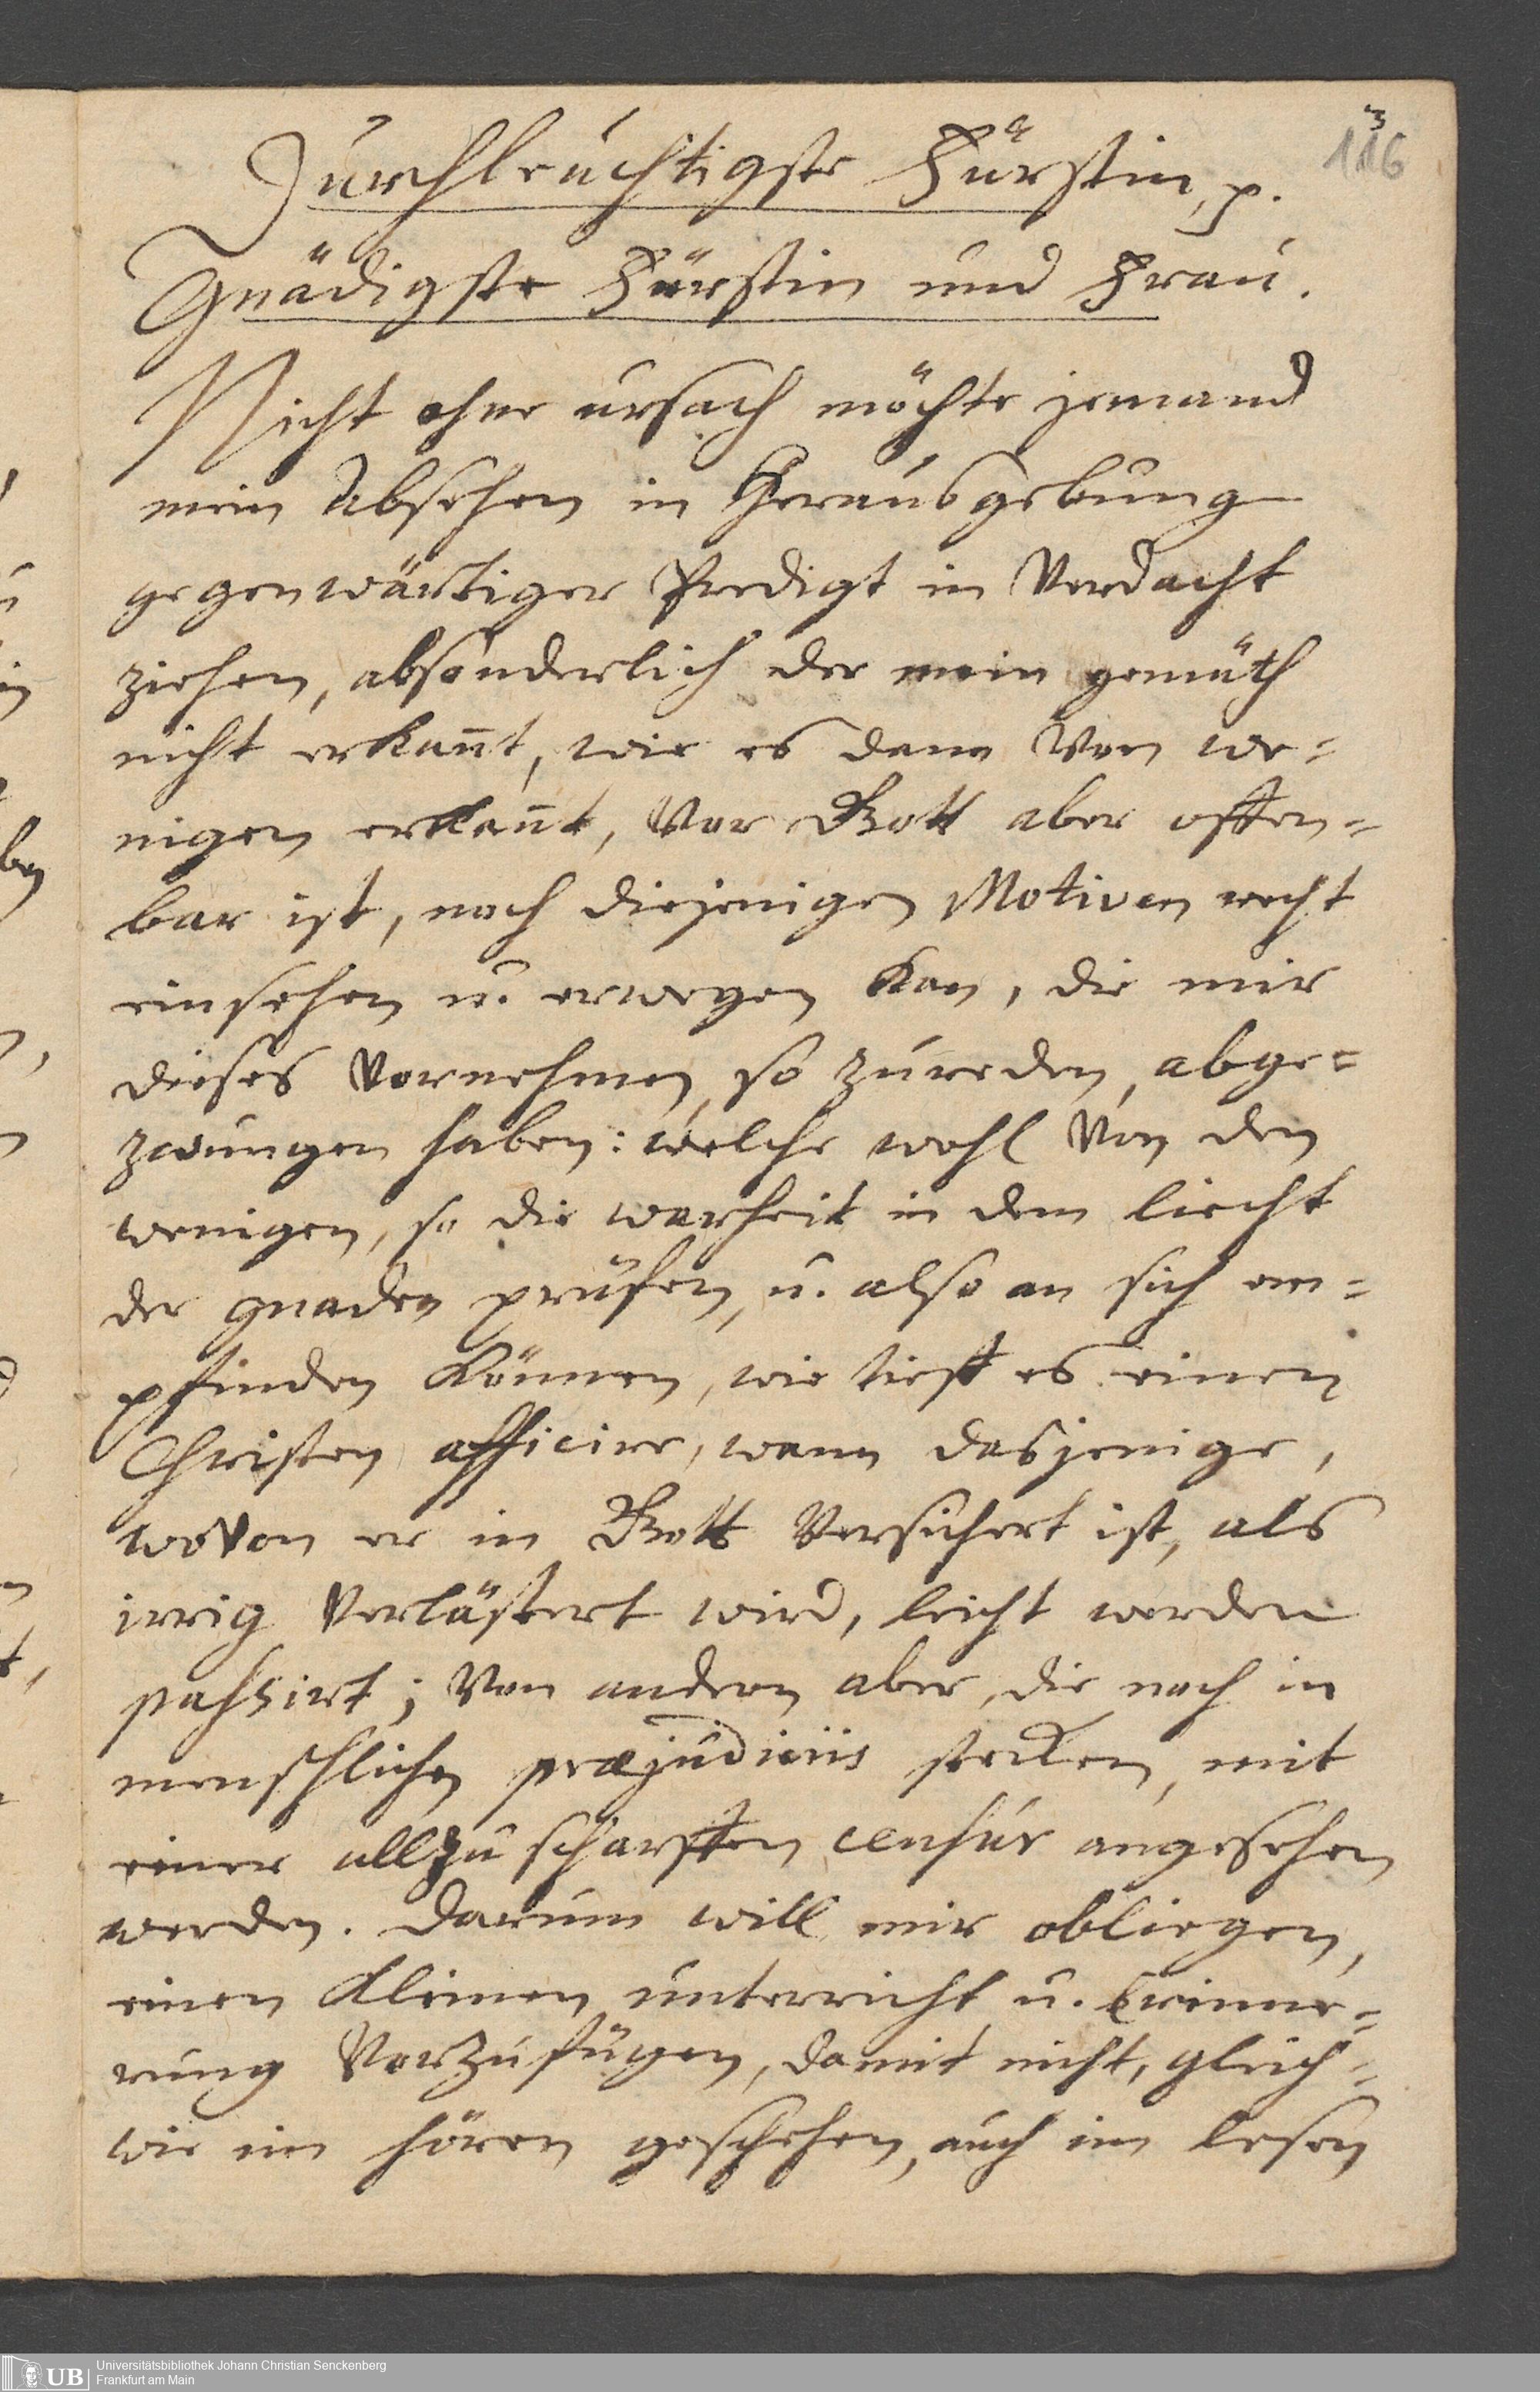 3
116
Durchleuchtigste Fürstin, p.
Gnädigste Fürstin und Frau.
Nicht ohne ursach möchte jemand
mein Absehen in Herausgebung
gegenwärtiger Predigt in Verdacht
ziehen, absonderlich der mein gemüth
nicht erkañt, wie es dann Von we=
nigen erkañt, Vor Gott aber offen=
bar ist, noch diejenigen Motiven recht
einsehen u. erwegen kan, die mir
dieses Vornehmen, so zureden, abge=
zwungen haben: welche wohl Von den
wenigen, so die warheit in dem liecht
der gnaden prüfen, u. also an sich em=
pfinden können, wie tieff es einen
Christen afficire, wann dasjenige,
woVon er in Gott Versichert ist, als
irrig Verlästert wird, leicht werden
passirt; Von andern aber, die noch in
menschlichen præjudiciis stecken, mit
einer allzu scharffen censur angesehen
werden. Darum will mir obliegen,
einen kleinen unterricht u. Erinne=
rung Vorzufügen, damit nicht, gleich=
wie im hören geschehen, auch im lesen
UB
Universitätsbibliothek Johann Christian Senckenberg
Frankfurt am Main